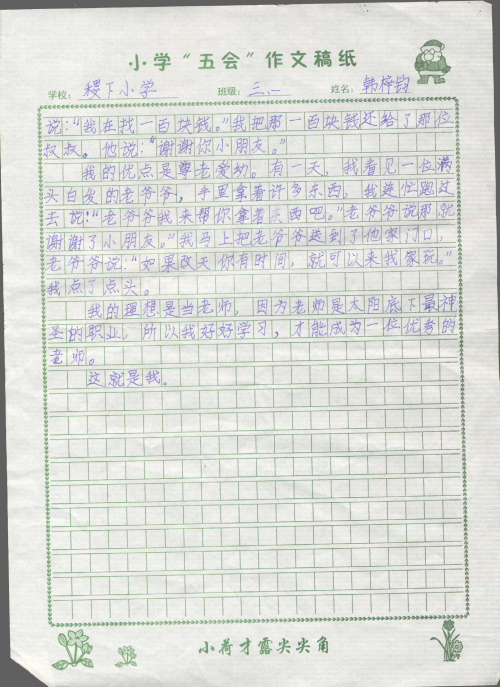 小学“五会”作文稿纸
学校：稷下小学 班级：三、一 姓名：韩梓钧
说：“我在找一百块钱。”我把那一百块钱还给了那位
叔叔。他说：“谢谢你小朋友。”
我的优点是尊老爱幼。有一天，我看见一位满
头白发的老爷爷，手里拿着许多东西，我连忙跑过
去说：“老爷爷我来帮你拿着东西吧。”老爷爷说那就
谢谢了小朋友。”我马上把老爷爷送到了他家门口，
老爷爷说：“如果改天你有时间，就可以来我家玩。”
我点了点头。
我的理想是当老师，因为老师是太阳底下最神
圣的职业，所以我好好学习，才能成为一位优秀的
老师。
这就是我。
小荷才露尖尖角